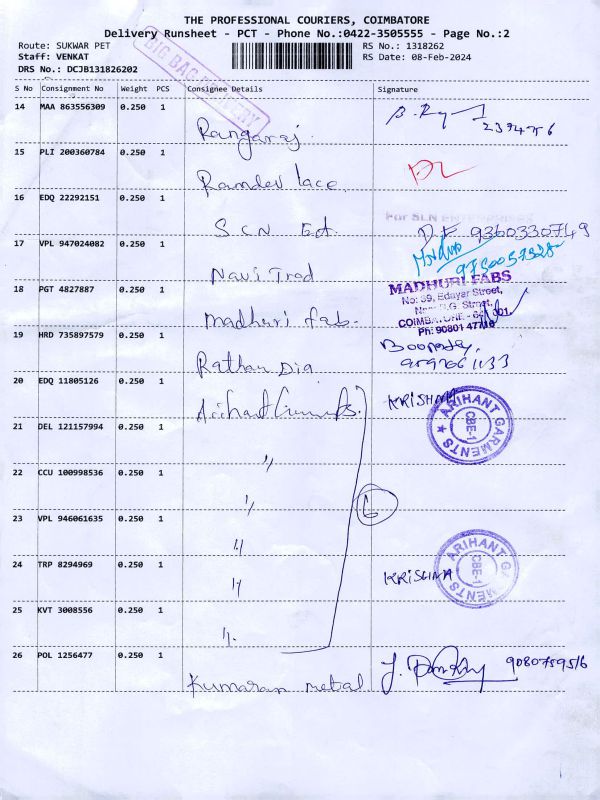 THE PROFESSIONAL COURIERS, COIMBATORE
Delivery Runsheet - PCT - Phone No.:0422-3505555 - Page No.:2
Route: SUKWAR PET RS No.: 1318262
Staff: VENKAT RS Date: 08-Feb-2024
DRS No.: DCJB131826202
BIG BAG DELIVERY
S No Consignment No Weight PCS Consignee Details Signature
14 MAA 863556309 0.250 1
Rangaraj
15 PLI 200360784 0.250 1
Ramdev lace
16 EDQ 22292151 0.250 1
For SLN ENTERPRISES
S C N Ed. 9360330749
17 VPL 947024082 0.250 1
9750057328
Navi Trad
18 PGT 4827887 0.250 1
MADHURI FABS
No: 39, Edayar Street,
COIMBATORE - 641 001.
Ph: 90801 47710
Madhuri fab.
19 HRD 735897579 0.250 1
Rathan Dia
20 EDQ 11805126 0.250 1
KRISHNA
ARIHANT GARMENTS ★ CBE-1
Arihant
21 DEL 121157994 0.250 1
"
22 CCU 100998536 0.250 1
"
6
23 VPL 946061635 0.250 1
"
24 TRP 8294969 0.250 1
KRISHNA
ARIHANT GA MENTS CBE-1
"
25 KVT 3008556 0.250 1
"
26 POL 1256477 0.250 1
Kumaran metal